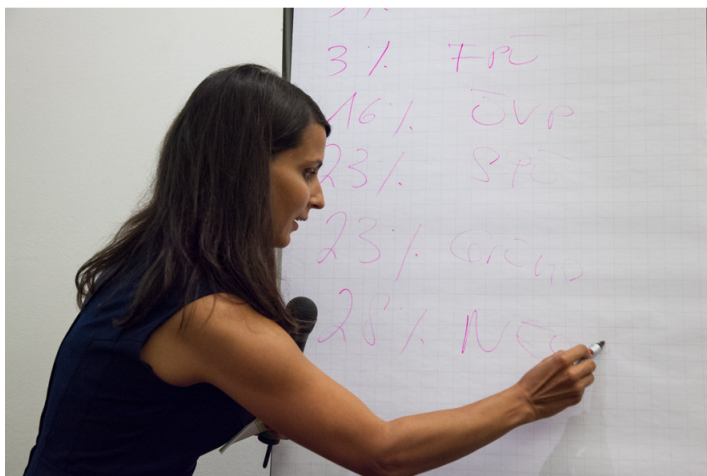 3% FPÖ
16% ÖVP
23% SPÖ
23% Grüne
28% NEO